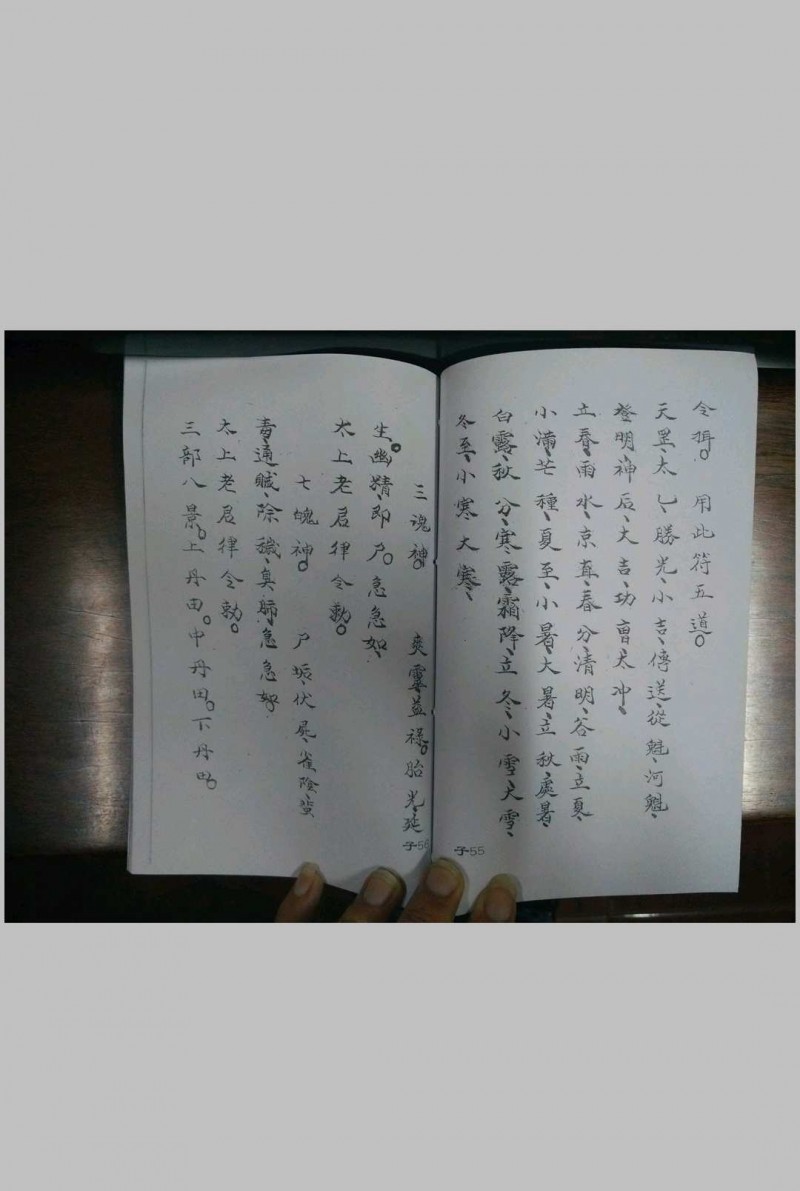 令揖。 用此符五道。
天罡、太乙、勝光、小吉、傳送、從魁、河魁、
登明、神后、大吉、功曹、太冲、
立春、雨水、京直、春分、清明、谷雨、立夏、
小滿、芒種、夏至、小暑、大暑、立秋、處暑、
白露、秋分、寒露、霜降、立冬、小雪、大雪、
冬至、小寒、大寒、
子55
三魂神。 爽靈益祿。胎光延
生。幽精即尸。急急如、
太上老君律令勅。
七魄神。 尸垢、伏屍、雀陰、蛮
毒、通贓、除穢、臭肺、急急如、
太上老君律令勅。
三部八景。上丹田。中丹田。下丹田。
子56